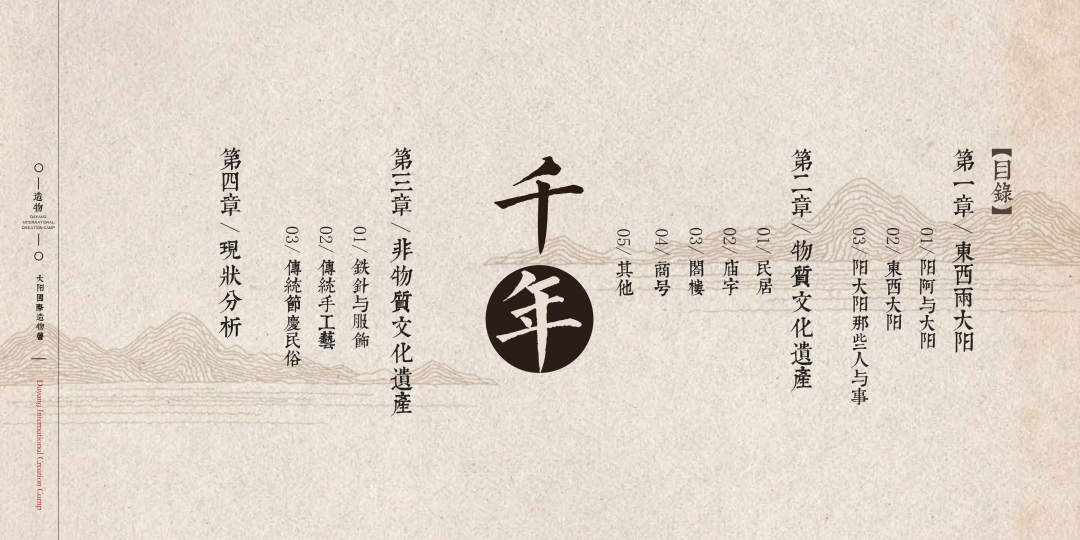 【目錄】
第一章/東西兩大阳
01/阳阿与大阳
02/東西大阳
03/阳大阳那些人与事
第二章/物質文化遺産
01/民居
02/庙宇
03/閤樓
04/商号
05/其他
千年
第三章/非物質文化遺産
01/鉄針与服飾
02/傳統手工藝
03/傳統節慶民俗
第四章/現狀分析
造物
DAYANG
INTERNATIONAL
CREATION CAMP
大阳國際造物營
Dayang International Creation Camp